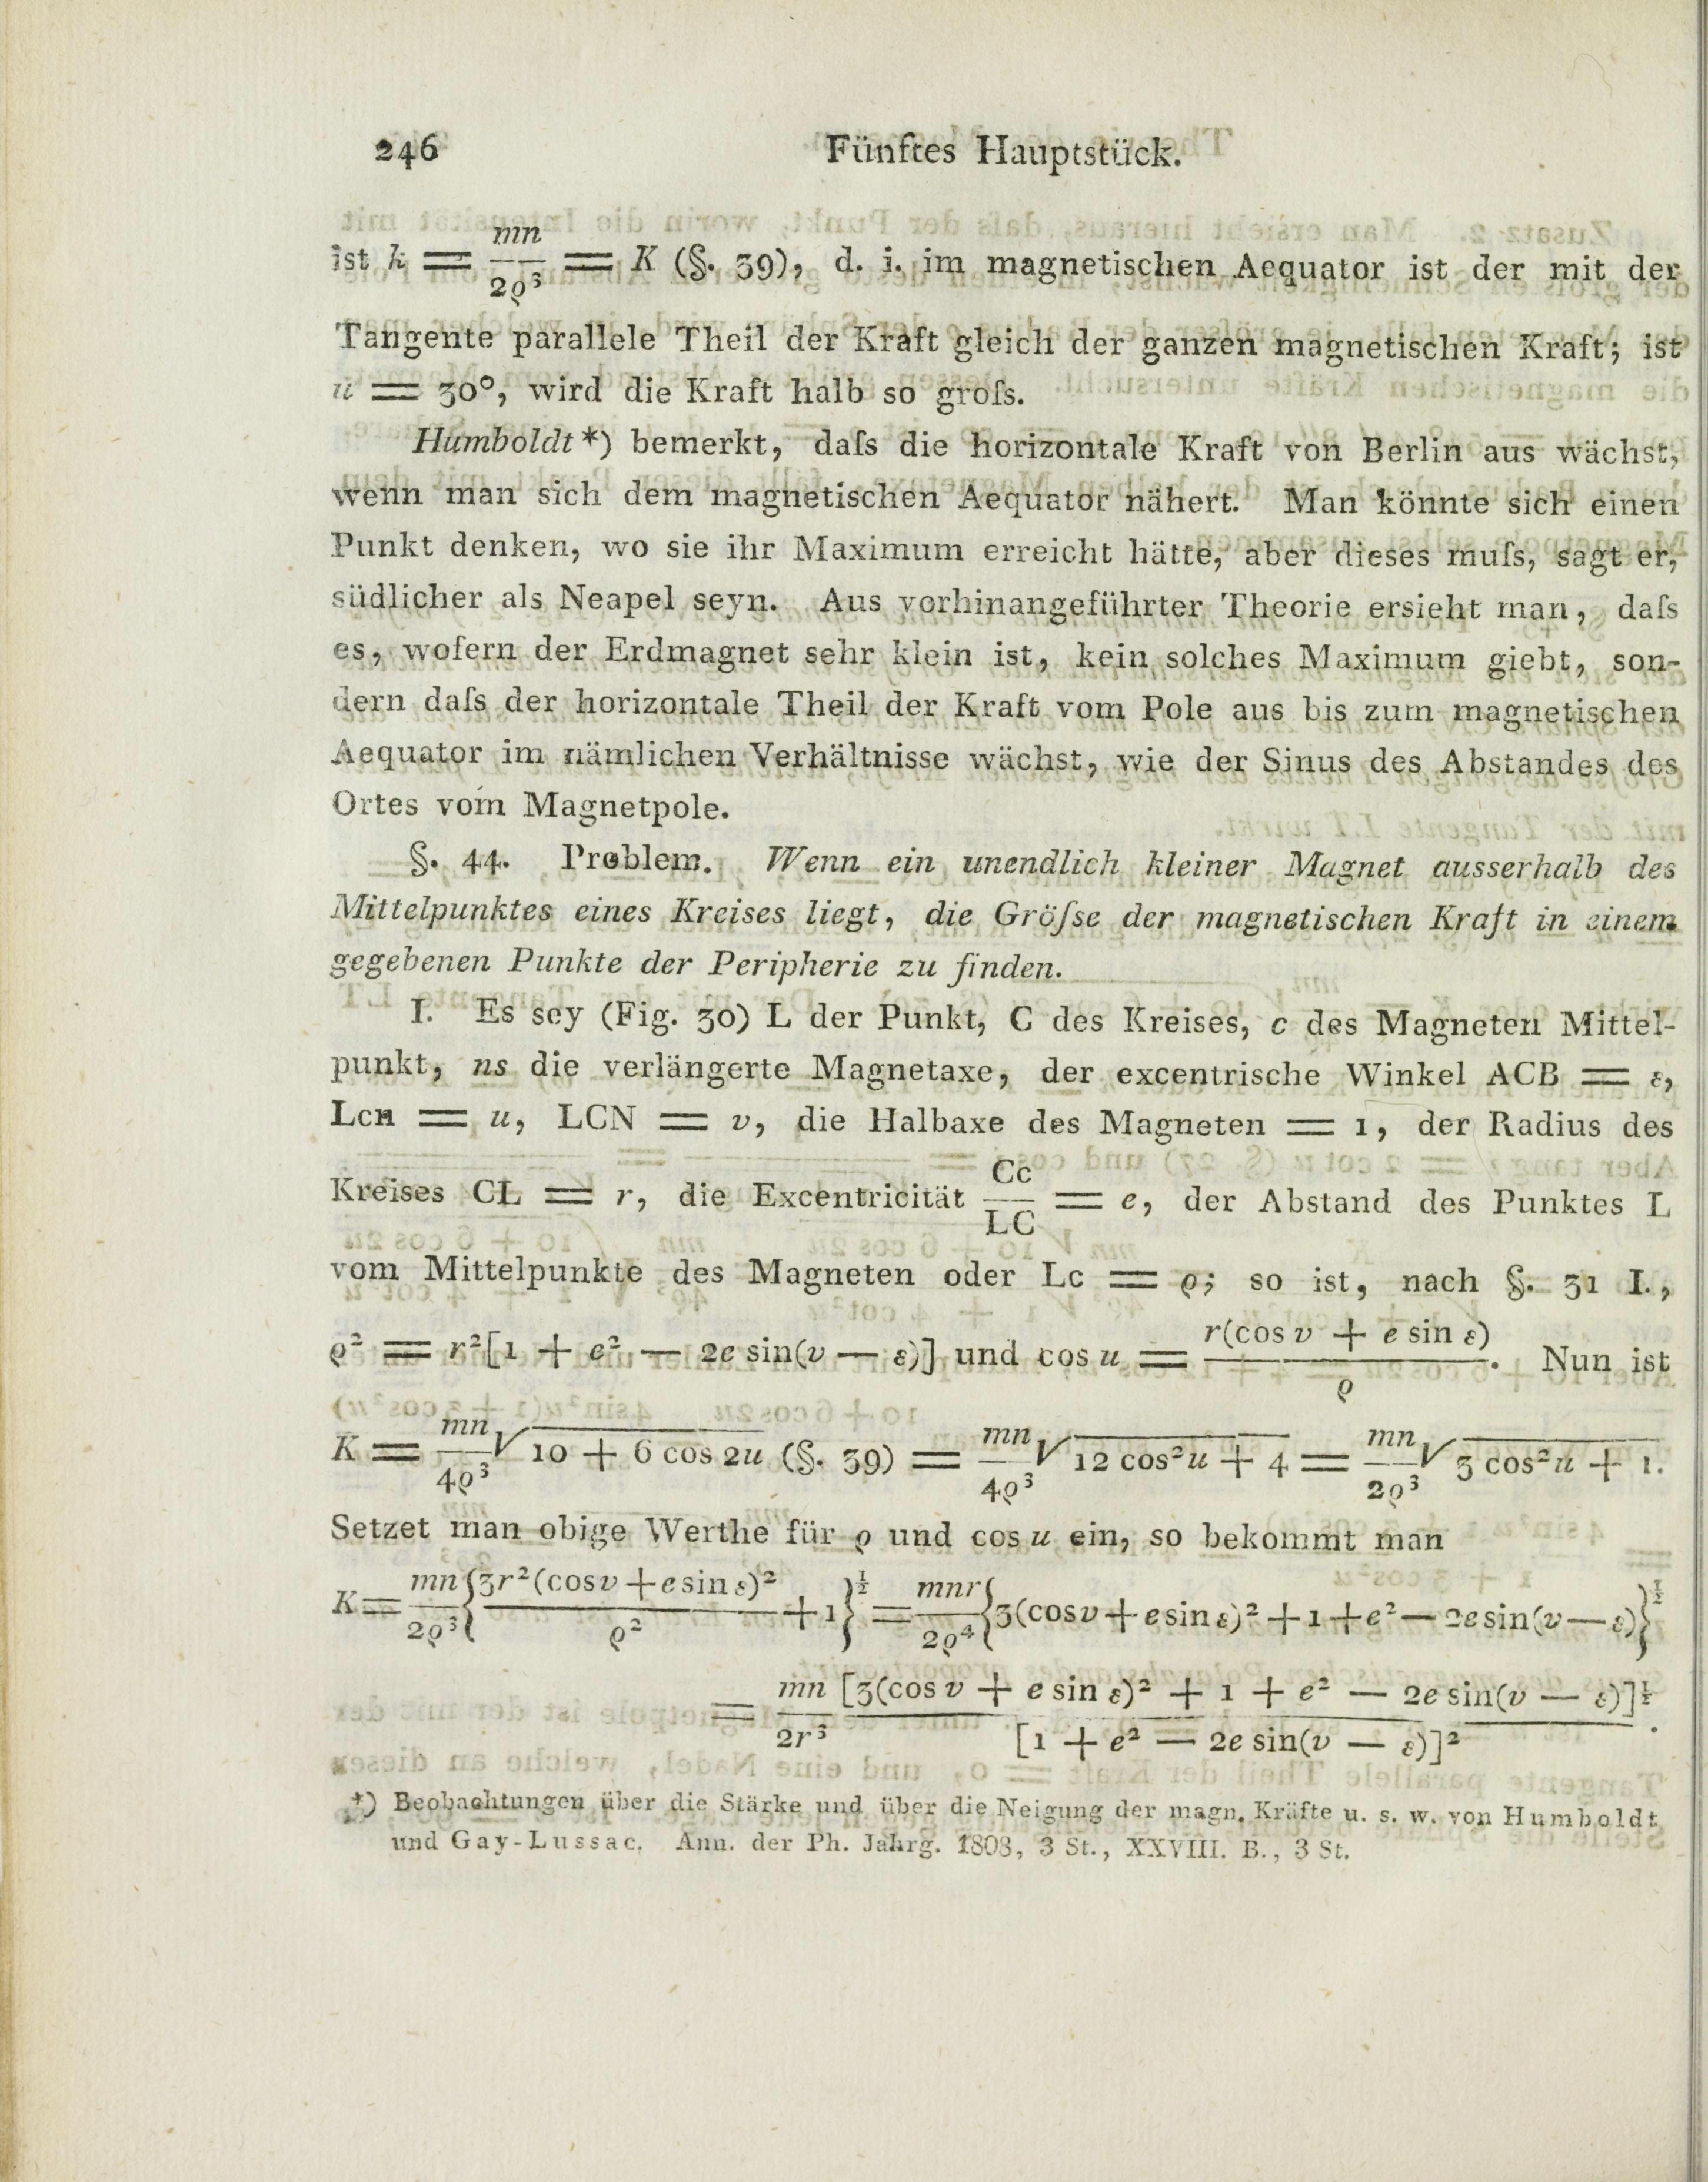 246 Fünftes Hauptstück.
ist k = mn/2ϱ³ = K (§. 39), d. i. im magnetischen Aequator ist der mit der
Tangente parallele Theil der Kraft gleich der ganzen magnetischen Kraft; ist
u = 30°, wird die Kraft halb so groſs.
Humboldt*) bemerkt, daſs die horizontale Kraft von Berlin aus wächst,
wenn man sich dem magnetischen Aequator nähert. Man könnte sich einen
Punkt denken, wo sie ihr Maximum erreicht hätte, aber dieses muſs, sagt er,
südlicher als Neapel seyn. Aus vorhinangeführter Theorie ersieht man, daſs
es, wofern der Erdmagnet sehr klein ist, kein solches Maximum giebt, son-
dern daſs der horizontale Theil der Kraft vom Pole aus bis zum magnetischen
Aequator im nämlichen Verhältnisse wächst, wie der Sinus des Abstandes des
Ortes vom Magnetpole.
§. 44. Problem. Wenn ein unendlich kleiner Magnet ausserhalb des
Mittelpunktes eines Kreises liegt, die Gröſse der magnetischen Kraft in einem
gegebenen Punkte der Peripherie zu finden.
I. Es sey (Fig. 30) L der Punkt, C des Kreises, c des Magneten Mittel-
punkt, ns die verlängerte Magnetaxe, der excentrische Winkel ACB = ε,
Lcn = u, LCN = v, die Halbaxe des Magneten = 1, der Radius des
Kreises CL = r, die Excentricität Cc/LC = e, der Abstand des Punktes L
vom Mittelpunkte des Magneten oder Lc = ϱ; so ist, nach §. 31 I.,
ϱ² = r²[1 + e² — 2e sin(v — ε)] und cos u = r(cos v + e sin ε)/ϱ. Nun ist
K = mn/4ϱ³ √10 + 6 cos 2u (§. 39) = mn/4ϱ³ √12 cos²u + 4 = mn/2ϱ³ √3 cos²u + 1.
Setzet man obige Werthe für ϱ und cos u ein, so bekommt man
K = mn/2ϱ³ {3r²(cos v + e sin ε)²/ϱ² + 1}^½ = mnr/2ϱ⁴ {3(cos v + e sin ε)² + 1 + e² — 2e sin(v — ε)}^½
= mn/2r³ [3(cos v + e sin ε)² + 1 + e² — 2e sin(v — ε)]^½/[1 + e² — 2e sin(v — ε)]².
*) Beobachtungen über die Stärke und über die Neigung der magn. Kräfte u. s. w. von Humboldt
und Gay-Lussac. Ann. der Ph. Jahrg. 1808, 3 St., XXVIII. B., 3 St.